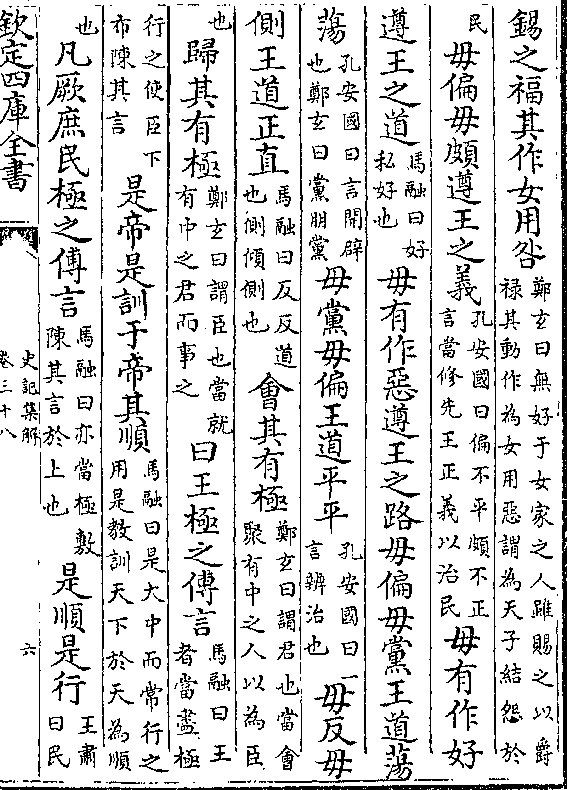 錫之福其作女用咎鄭玄曰無好于女家之人雖賜之以爵祿其動作為女用惡謂為天子結怨於
民毋偏毋頗遵王之義孔安國曰偏不平頗不正言當修先王正義以治民毋有作好
遵王之道馬融曰好私好也毋有作惡遵王之路毋偏毋黨王道蕩
蕩孔安國曰言開辟也鄭玄曰黨朋黨毋黨毋偏王道平平孔安國曰言辨治也毋反毋
側王道正直馬融曰反反道也側傾側也會其有極鄭玄曰謂君也當會聚有中之人以為臣
也歸其有極鄭玄曰謂臣也當就有中之君而事之曰王極之傅言馬融曰王者當盡極
行之使臣下布陳其言是帝是訓于帝其順馬融曰是大中而常行之用是教訓天下於天為順
也凡厥庶民極之傅言馬融曰亦當極敷陳其言於上也是順是行王肅曰民
欽定四庫全書
史記集解
卷三十八
六